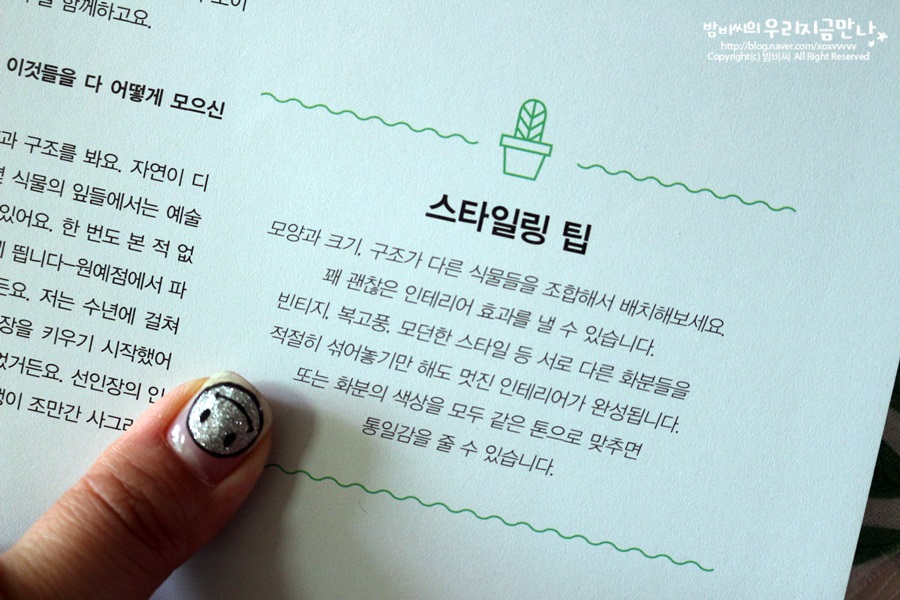 함께하고요.
이것들을 다 어떻게 모으신
구조를 봐요. 자연이 디
식물의 잎들에서는 예술
있어요. 한 번도 본 적 없
띕니다–원예점에서 파
저는 수년에 걸쳐
키우기 시작했어
선인장의
조만간
밤비씨의 우리지금만나
http://blog.naver.com/xoxvvvvv
Copyright(c) 밤비씨 All Right Reserved
스타일링 팁
모양과 크기, 구조가 다른 식물들을 조합해서 배치해보세요.
꽤 괜찮은 인테리어 효과를 낼 수 있습니다.
빈티지, 복고풍, 모던한 스타일 등 서로 다른 화분들을
적절히 섞어놓기만 해도 멋진 인테리어가 완성됩니다.
또는 화분의 색상을 모두 같은 톤으로 맞추면
통일감을 줄 수 있습니다.